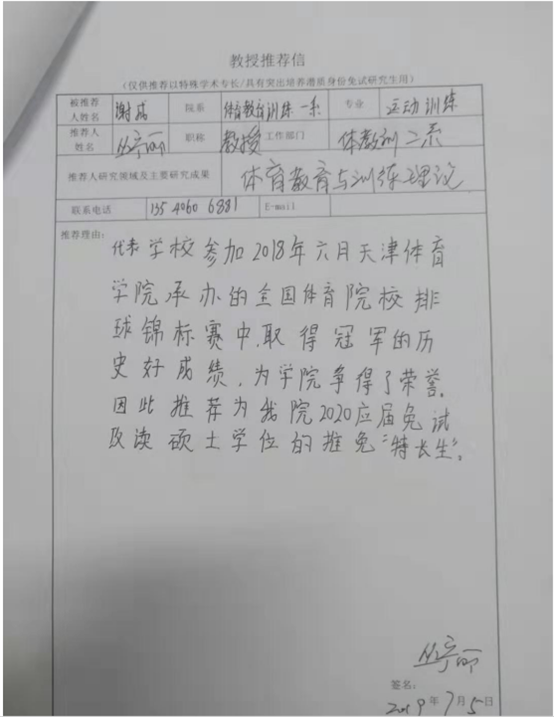 教授推荐信
（仅供推荐以特殊学术专长/具有突出培养潜质身份免试研究生用）
被推荐人姓名 谢成 院系 体育教育训练一系 专业 运动训练
推荐人姓名 丛宁丽 职称 教授 工作部门 体教训二系
推荐人研究领域及主要研究成果 体育教育与训练理论
联系电话 135 4060 6881 E-mail
推荐理由：
代表学校参加2018年六月天津体育
学院承办的全国体育院校排
球锦标赛中,取得冠军的历
史好成绩，为学院争得了荣誉。
因此推荐为我院2020应届免试
攻读硕士学位的推免“特长生”。
丛宁丽
签名：
2019年7月5日